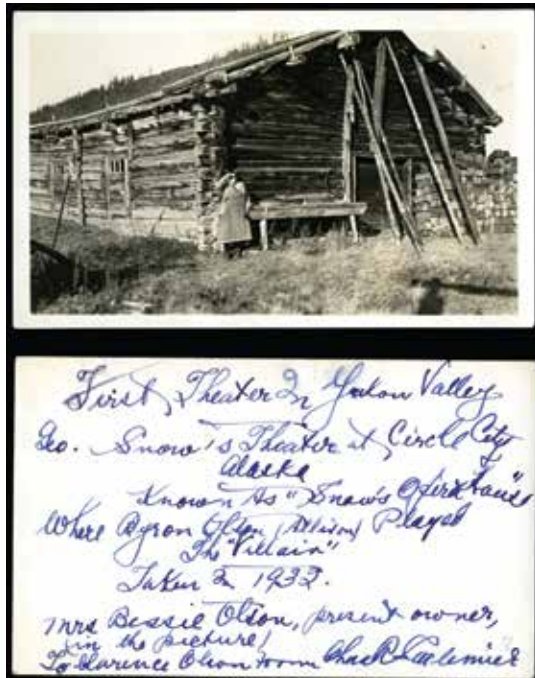 First Theater In Yukon Valley
Geo. Snow's Theater at Circle City
Alaska
Known As "Snow's Opera House"
Where Byron Olson Played
The "Villain"
Taken In 1932.
Mrs Bessie Olson, present owner,
in the picture
To Clarence Olson from Chas R